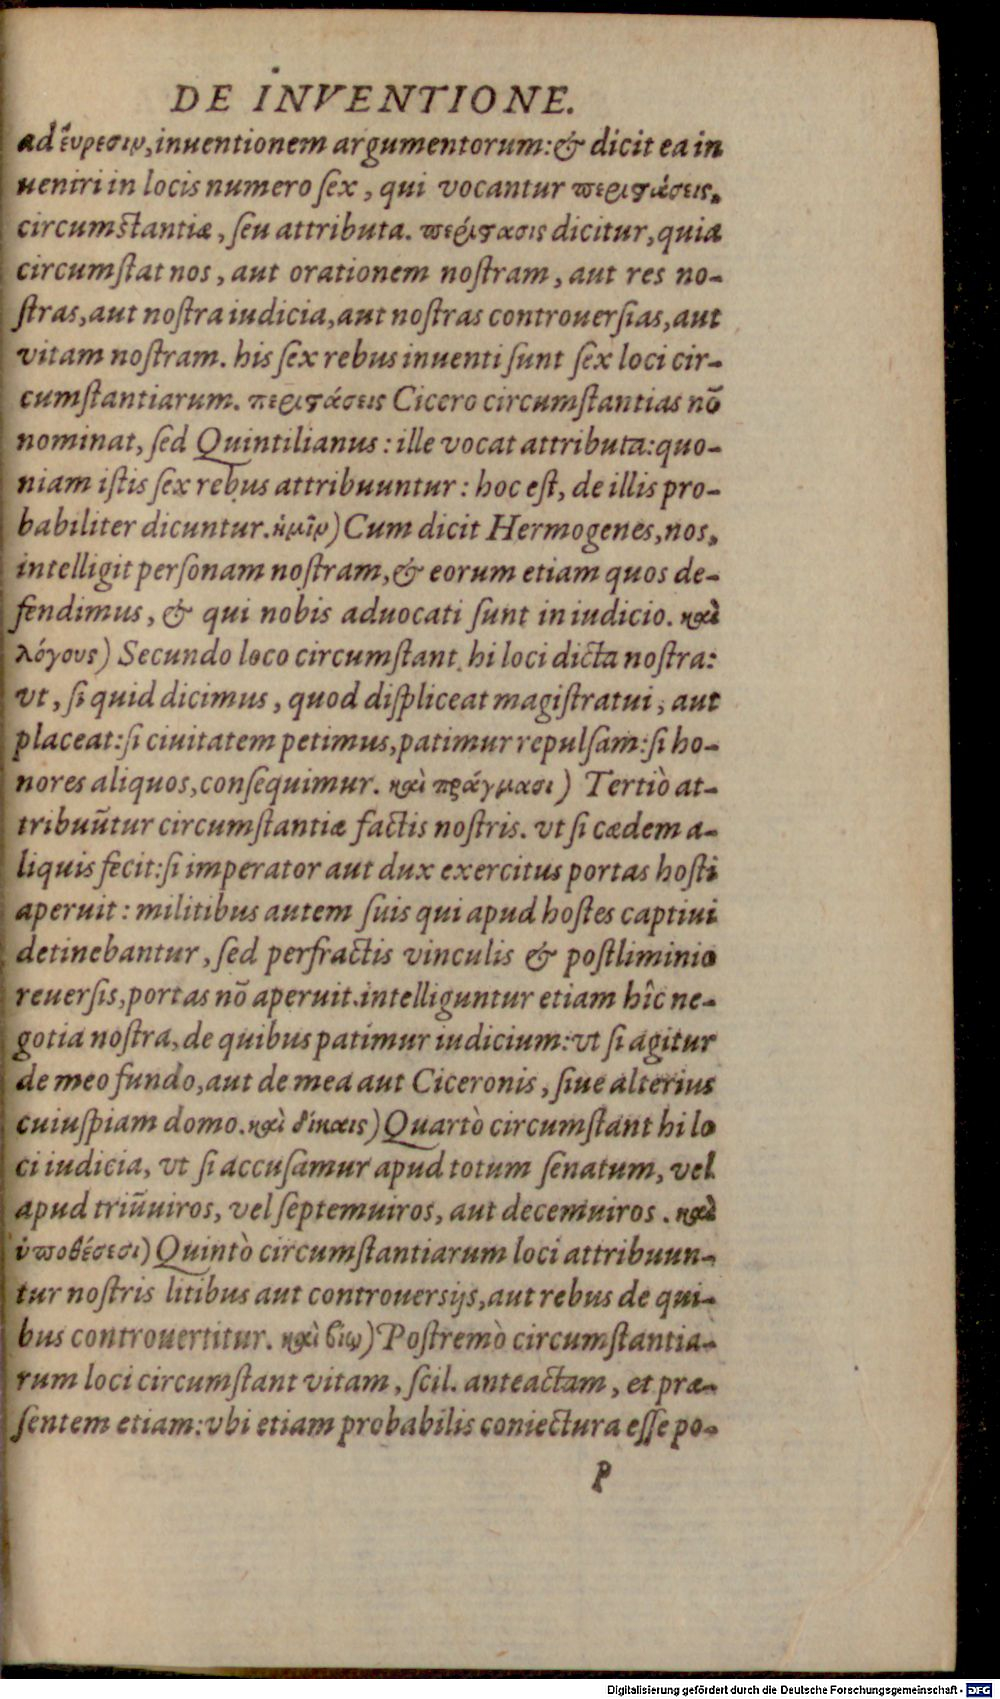 DE INVENTIONE.
ad εὕρεσιν, inuentionem argumentorum: & dicit ea in
ueniri in locis numero ſex, qui vocantur περιστάσεις,
circumſtantiæ, ſeu attributa. περίστασις dicitur, quia
circumſtat nos, aut orationem noſtram, aut res no-
ſtras, aut noſtra iudicia, aut noſtras controuerſias, aut
vitam noſtram. his ſex rebus inuenti ſunt ſex loci cir-
cumſtantiarum. περιστάσεις Cicero circumſtantias nō
nominat, ſed Quintilianus: ille vocat attributa: quo-
niam iſtis ſex rebus attribuuntur: hoc eſt, de illis pro-
babiliter dicuntur. ἡμῖν) Cum dicit Hermogenes, nos,
intelligit perſonam noſtram, & eorum etiam quos de-
fendimus, & qui nobis aduocati ſunt in iudicio. καὶ
λόγους) Secundo loco circumſtant hi loci dicta noſtra:
vt, ſi quid dicimus, quod diſpliceat magiſtratui, aut
placeat: ſi ciuitatem petimus, patimur repulſam: ſi ho-
nores aliquos, conſequimur. καὶ πράγμασι) Tertiò at-
tribuūtur circumſtantiæ factis noſtris. vt ſi cædem a-
liquis fecit: ſi imperator aut dux exercitus portas hoſti
aperuit: militibus autem ſuis qui apud hoſtes captiui
detinebantur, ſed perfractis vinculis & poſtliminio
reuerſis, portas nō aperuit. intelliguntur etiam hîc ne-
gotia noſtra, de quibus patimur iudicium: vt ſi agitur
de meo fundo, aut de mea aut Ciceronis, ſiue alterius
cuiuſpiam domo. καὶ δίκαις) Quartò circumſtant hi lo
ci iudicia, vt ſi accuſamur apud totum ſenatum, vel
apud triūuiros, vel ſeptemuiros, aut decemuiros. καὶ
ὑποθέσεσι) Quintò circumſtantiarum loci attribuun-
tur noſtris litibus aut controuerſijs, aut rebus de qui-
bus controuertitur. καὶ βίῳ) Poſtremò circumſtantia-
rum loci circumſtant vitam, ſcil. anteactam, et præ-
ſentem etiam: vbi etiam probabilis coniectura eſſe po-
P
Digitalisierung gefördert durch die Deutsche Forschungsgemeinschaft - DFG